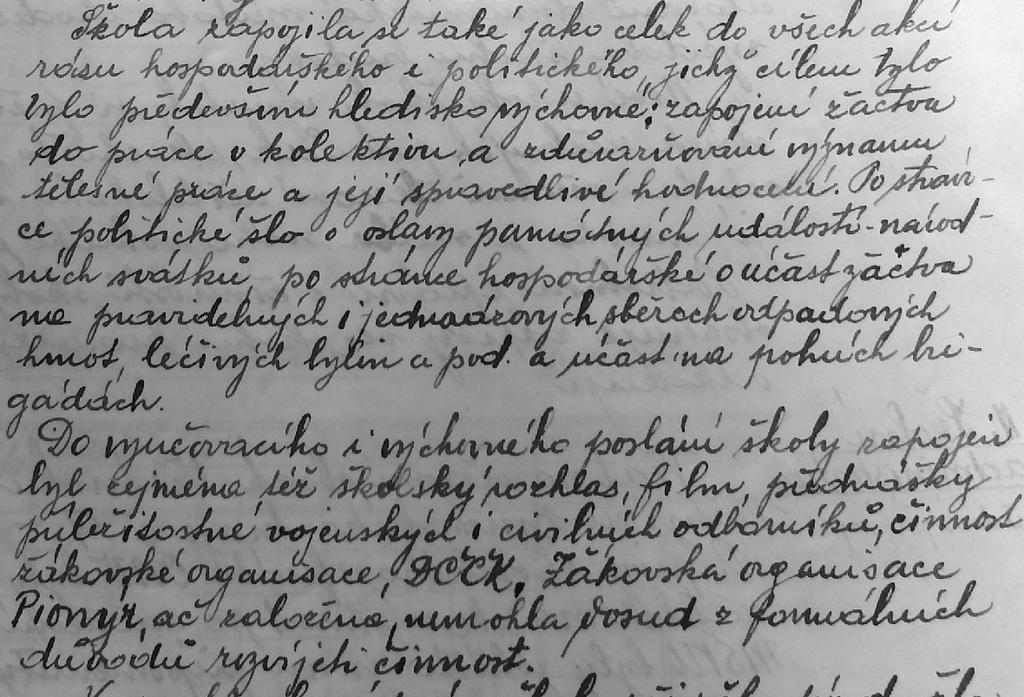 Škola zapojila se také jako celek do všech akcí
rázu hospodářského i politického, jichž cílem bylo
bylo především hledisko výchovné: zapojení žactva
do práce v kolektivu, a zdůvarňování významu
tělesné práce a její spravedlivé hodnocení. Po strán-
ce politické šlo o oslavy památných událostí-národ-
ních svátků, po stránce hospodářské o účast žáctva
na pravidelných i jednorázových sběrech odpadových
hmot, léčivých bylin a pod. a účast na polních bri-
gádách.
Do vyučovacího i výchovného poslání školy zapojen
byl zejména též školský rozhlas, film, přednášky
příležitostné vojenských i civilních odborníků, činnost
žákovské organisace, DČČK. Žákovská organisace
Pionýr, ač založena, nemohla dosud z formálních
důvodů rozvíjeti činnost.